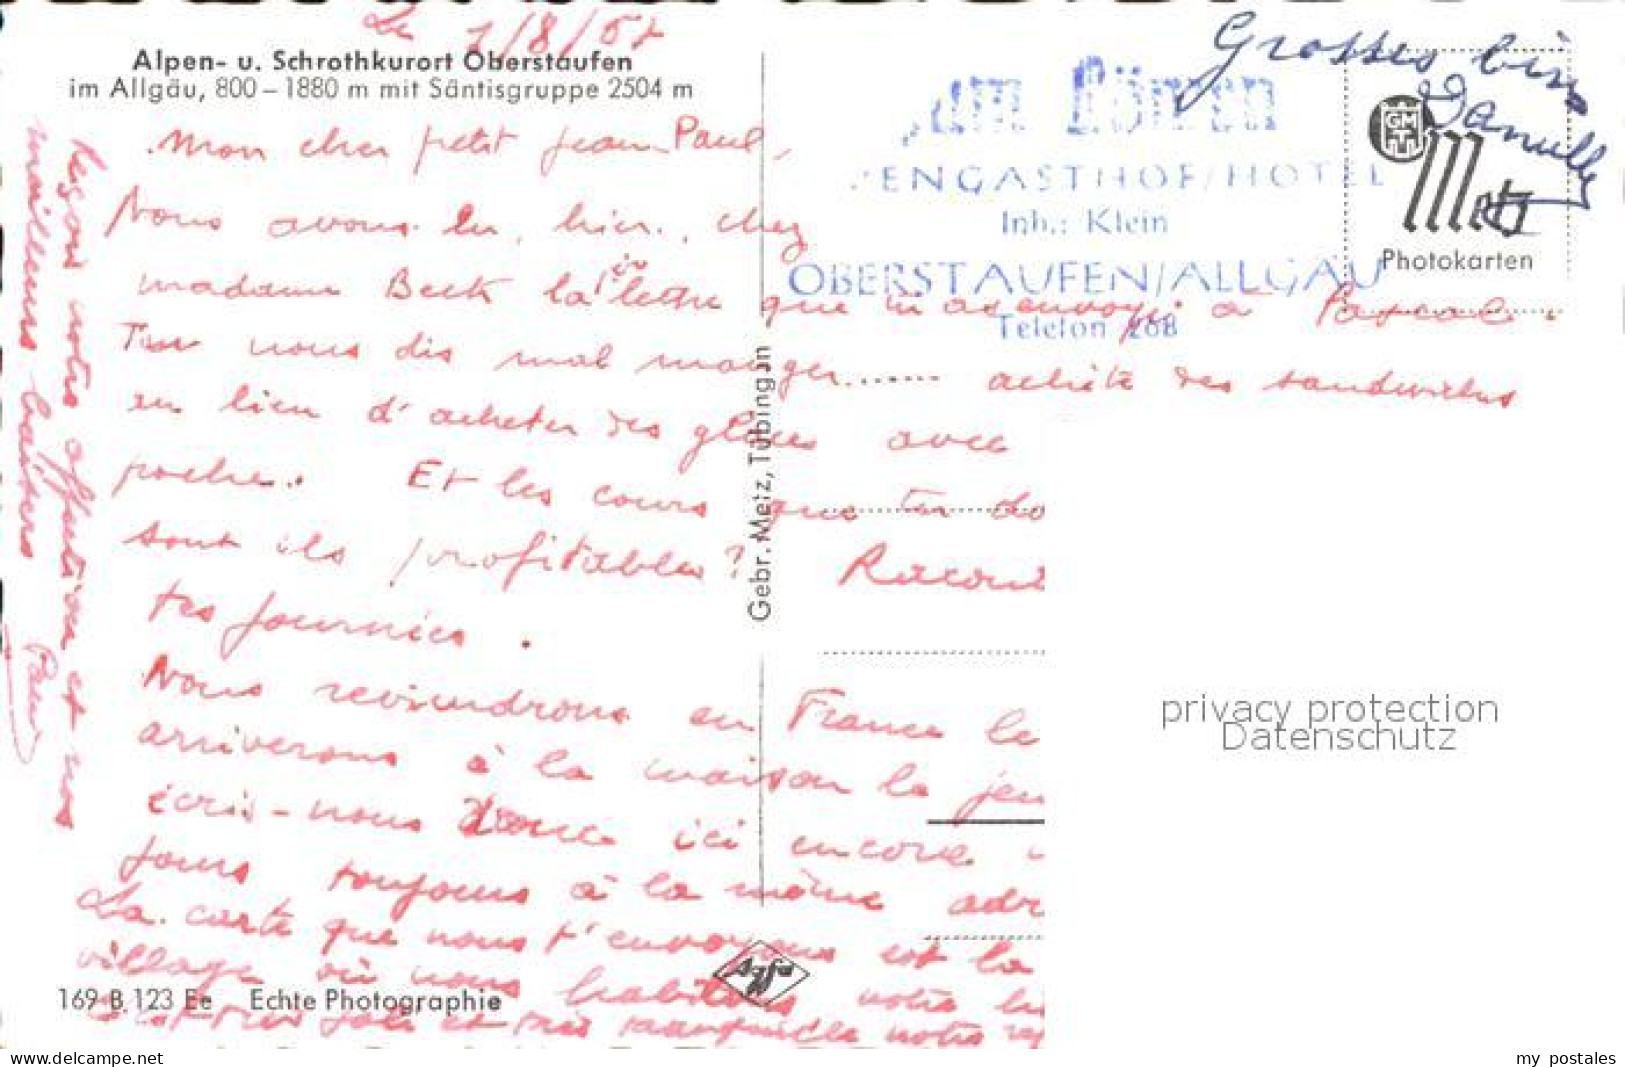 Le 1/8/57
Alpen- u. Schrothkurort Oberstaufen
im Allgäu, 800 – 1880 m mit Säntisgruppe 2504 m
Mon cher petit Jean Paul,
Nous avons lu, hier, chez
madame Beck la lettre que tu as envoyé à Pascal.
Tu nous dis mal manger...... achète des sandwichs
au lieu d'acheter des glaces avec
poche. Et les cours que tu do
sont ils profitables? Racont
tes journées.
Nous reviendrons en France le
arriverons à la maison le jeu
écris-nous donc ici encore
jours toujours à la même adr
La carte que nous t'envoyons est la
village où nous habitons notre
est très joli et très tranquille notre
reçois notre affection et nos
meilleurs baisers
Grosses bises
Danielle
ENGASTHOF/HOTEL
Inh.: Klein
OBERSTAUFEN/ALLGÄU
Telefon 268
GM
Metz
Photokarten
Gebr. Metz, Tübingen
Agfa
169 B.123 Ee Echte Photographie
privacy protection
Datenschutz
www.delcampe.net
my_postales